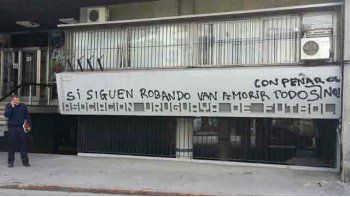 CON PEÑAROL
SI SIGUEN ROBANDO VAN A MORIR TODOS NO!
ASOCIACION URUGUAYA DE FUTBOL